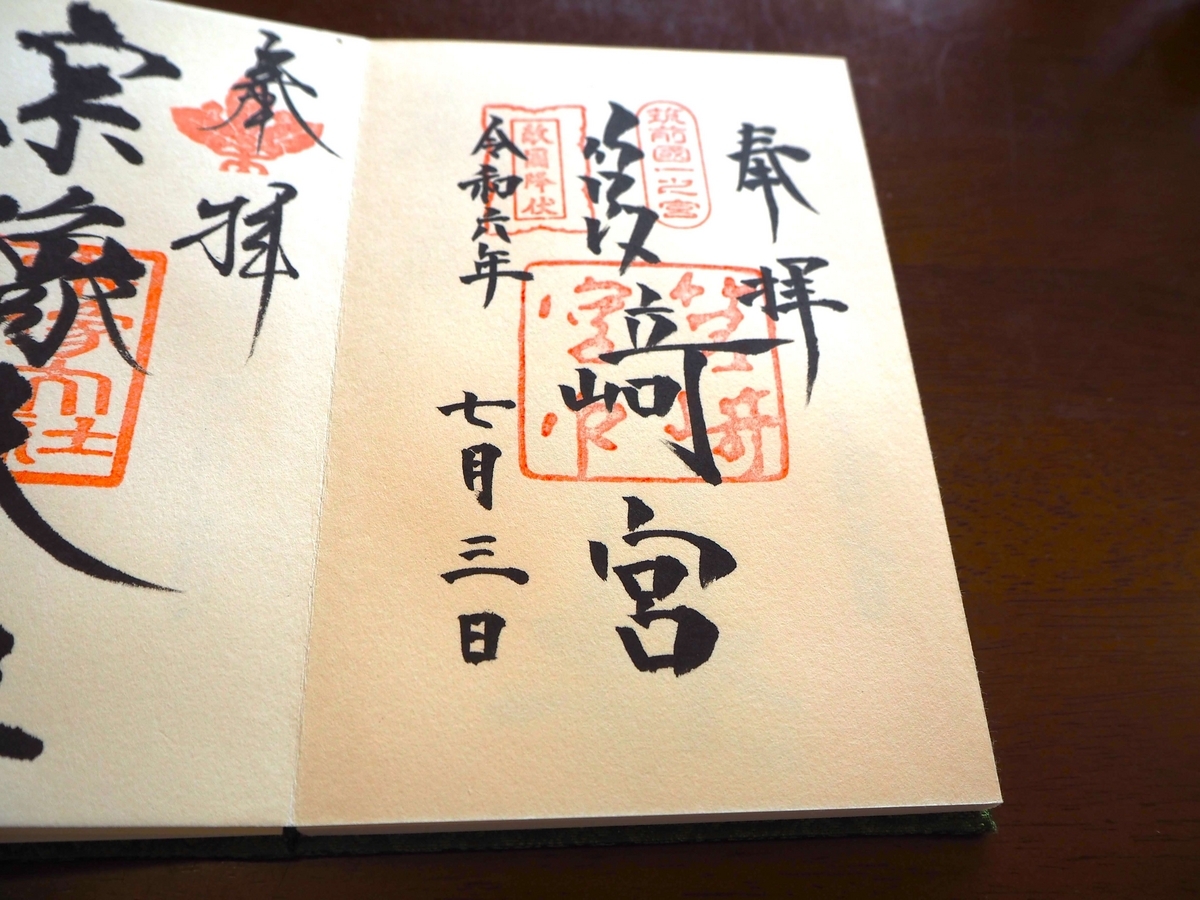 奉拝
筑前國一之宮
筥崎宮
敵國降伏
令和六年
七月三日
奉拝
宗像大社